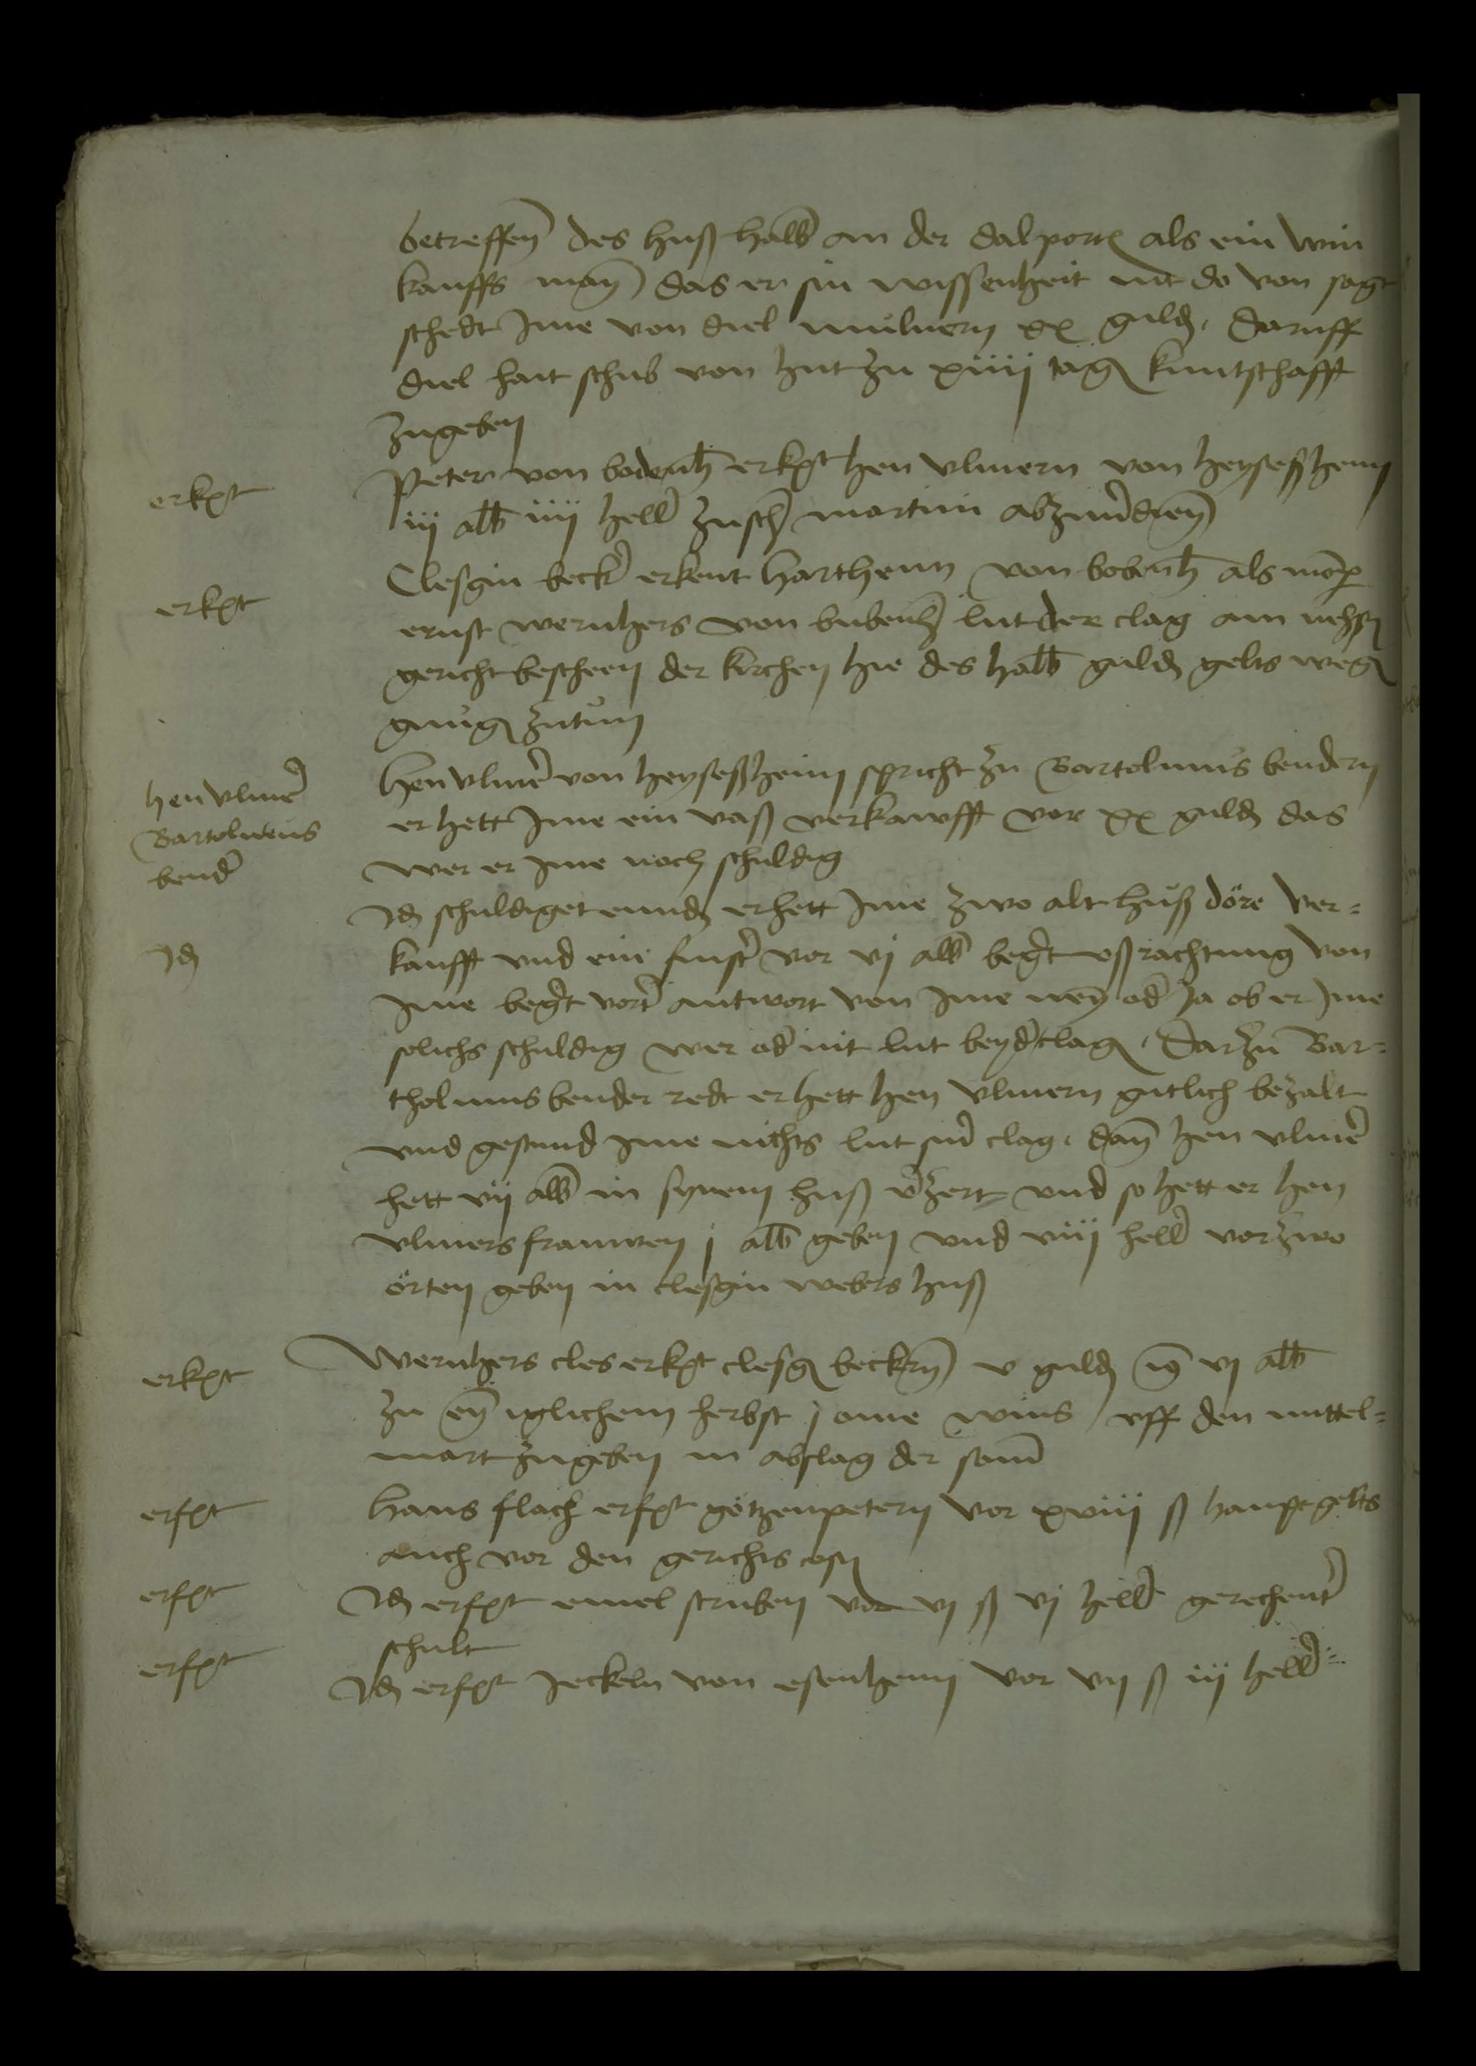 betreffen des huß halb an der dalporten als ein win
kauffs man das er sin wissenheit nit do von sagt
schedt Ime von diel mulnern xx guld, daruff
diel hait schub von hut zu xiiij tagen kuntschafft
zugeben
erknt Peter von bodenh erknt hen vlmern von heyseßheim
iij alb iiij hell zuschn martini abzuverdienen
erknt Clesgin becker erkent harthenn von bobenh als momper
ernst wernhers von bubenh lut der clag am nehsten
gericht bescheen der kirchen hie des halb guld gelts wegen
gnugen zutun
hen vlmer Bartolmeus bend Hen vlmer von heyseßheim spricht zu Bartolmus bendern
er hett Ime ein vaß verkawfft vor xx guld das
wer er Ime noch schuldig
Id Id schuldiget ennd er hett Ime zwo alt huß döre ver=
kaufft vnd ein finster vor vj alb begert vßrachtung von
Ime begert vorter antwort von Ime neyn oder Ja ob er Ime
solichs schuldig wer oder nit lut beyder clagen, Darzu Bar=
tholmus bender redt er hett hen vlmern gutlich bezalt
vnd gestund Ime nichts lut siner clag, dan hen vlmer
hett vij alb in synem huß verzert vnd so hett er hen
vlmers frauwen j alb geben vnd viij heller vor zwo
örten geben in clesgin webers huß
erknt Wernhers cles erknt clesgen beckern v guld vj alb
zu eyn iglichem herbst j ame wins vff den mittel=
mart zugeben in abslag der som
erfnt Hans flach erfnt götzenpetern vor xviij ß hauptgelts
auch vor den gerichts costen
erfnt Id erfnt emel struben vor vj ß vj heller gerechenter
schult
erfnt Id erfnt Jeckeln von esenheim vor vij ß iij heller